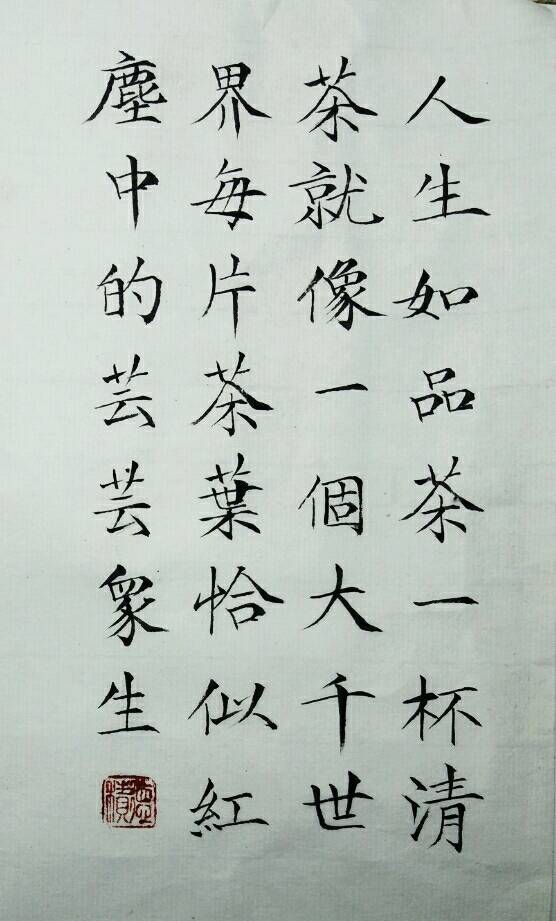 人生如品茶一杯清
茶就像一個大千世
界每片茶葉恰似紅
塵中的芸芸衆生